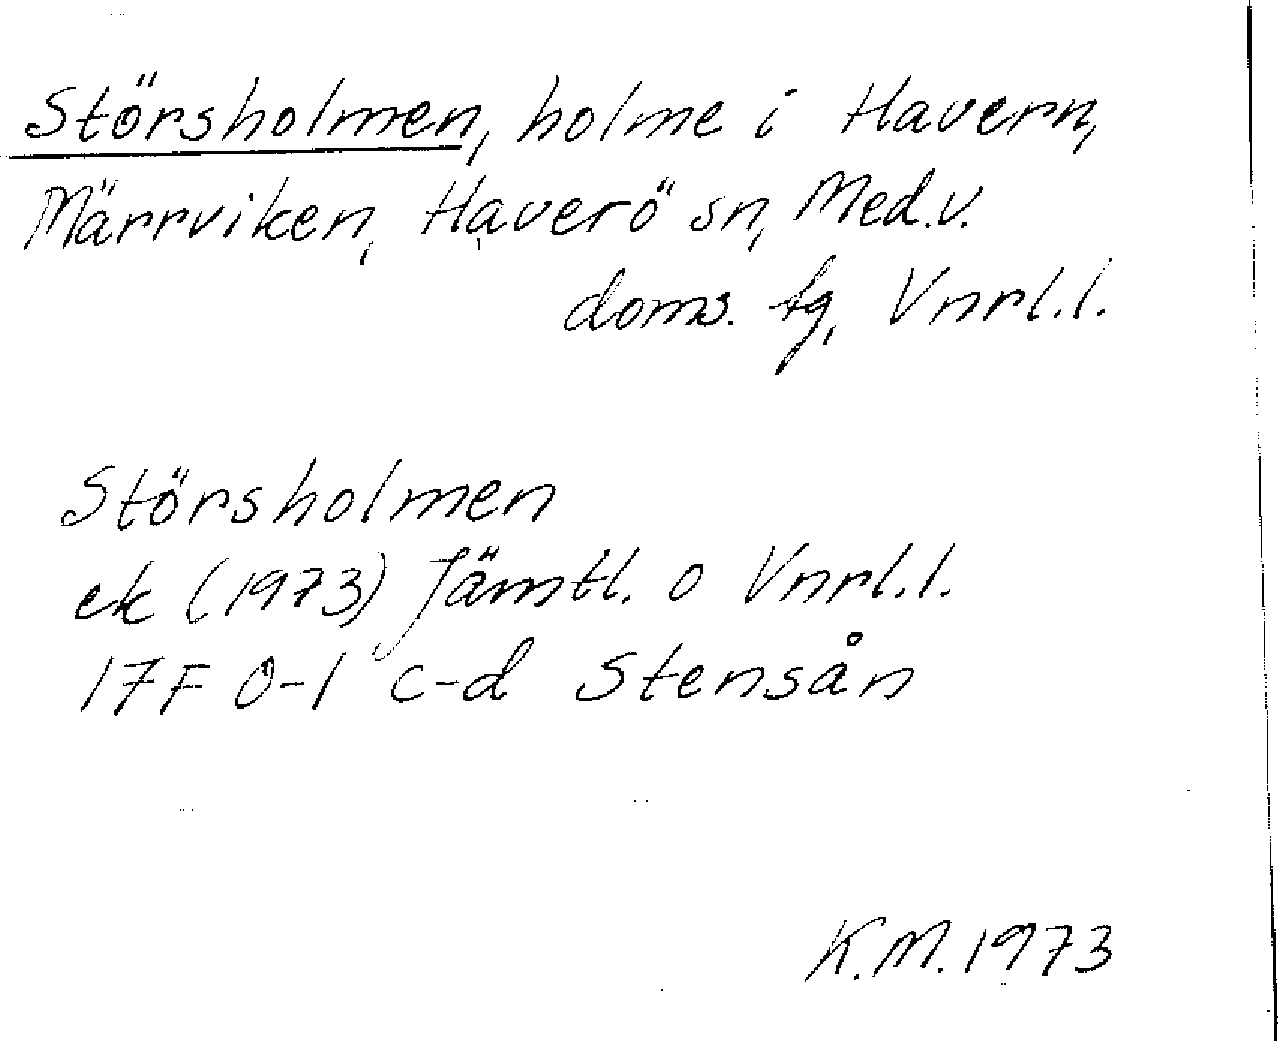 Störsholmen, holme i Havern,
Märrviken, Haverö sn, Med.v.
doms. tg, Vnrl.l.
Störsholmen
ek (1973) Jämtl. o Vnrl.l.
17F 0-1 c-d Stensån
K.M. 1973